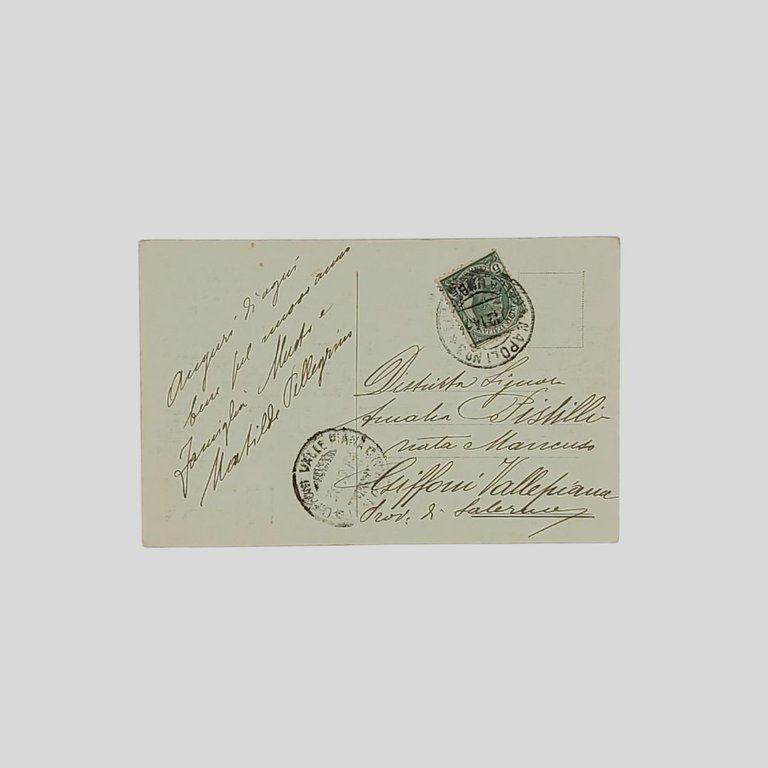 Auguri di ogni
bene pel nuovo anno
Famiglia Musto e
Matilde Pellegrino
5
NAPOLI
Distinta Signora
Amalia Pistilli
nata Mancuso
Giffoni Vallepiana
Prov. di Salerno
GIFFONI VALLE PIANA